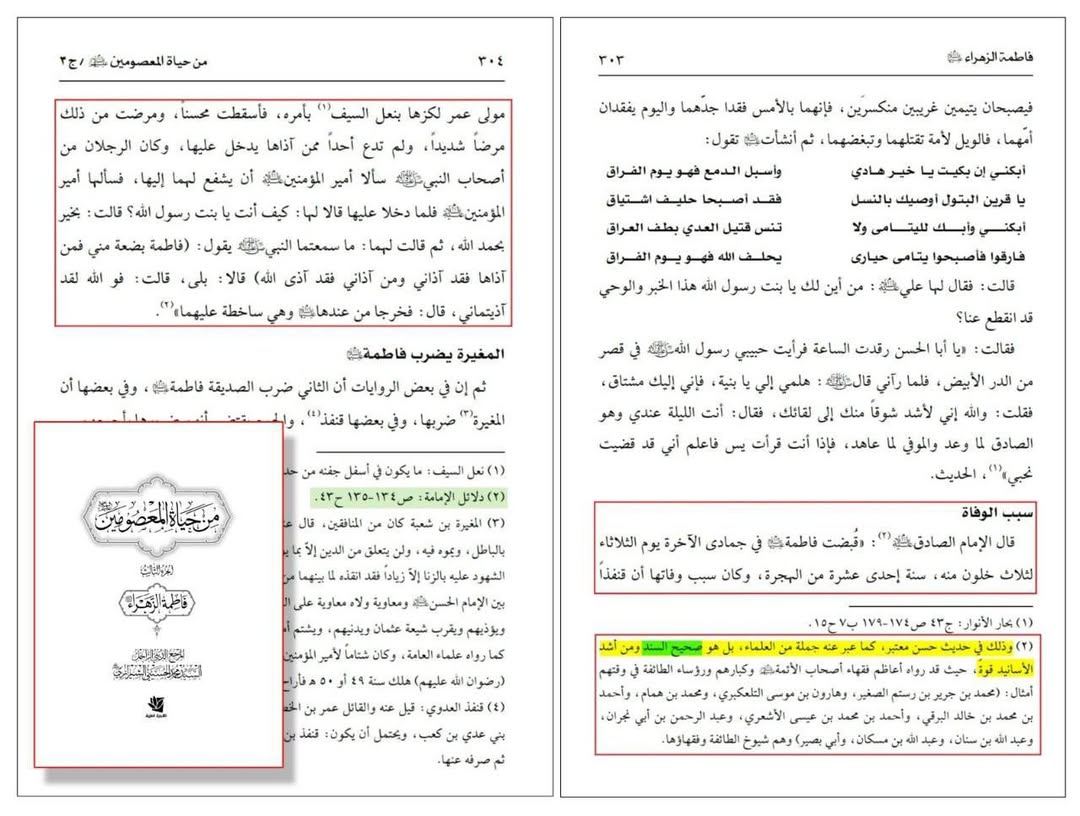 فاطمة الزهراء ٣٠٣
فيصبحان يتيمين غريبين منكسرَين، فإنهما بالأمس فقدا جدّهما واليوم يفقدان
أمّهما، فالويل لأمة تقتلهما وتبغضهما، ثم أنشأت تقول:
أبكني إن بكيت يا خير هادي وأسبل الدمع فهو يوم الفراق
يا قرين البتول أوصيك بالنسل فقد أصبحا حليف اشتياق
أبكني وأبك لليتامى ولا تنس قتيل العدي بطف العراق
فارقوا فأصبحوا يتامى حيارى يحلف الله فهو يوم الفراق
قالت: فقال لها علي: من أين لك يا بنت رسول الله هذا الخبر والوحي
قد انقطع عنا؟
فقالت: «يا أبا الحسن رقدت الساعة فرأيت حبيبي رسول الله في قصر
من الدر الأبيض، فلما رآني قال: هلمي إلي يا بنية، فإني إليك مشتاق،
فقلت: والله إني لأشد شوقاً منك إلى لقائك، فقال: أنت الليلة عندي وهو
الصادق لما وعد والموفي لما عاهد، فإذا أنت قرأت يس فاعلم أني قد قضيت
نحبي»(١)، الحديث.
سبب الوفاة
قال الإمام الصادق(٢): «قُبضت فاطمة في جمادى الآخرة يوم الثلاثاء
لثلاث خلون منه، سنة إحدى عشرة من الهجرة، وكان سبب وفاتها أن قنفذاً
(١) بحار الأنوار: ج٤٣ ص١٧٤-١٧٩ ب٧ ح١٥.
(٢) وذلك في حديث حسن معتبر، كما عبر عنه جملة من العلماء، بل هو صحيح السند ومن أشد
الأسانيد قوةً، حيث قد رواه أعاظم فقهاء أصحاب الأئمة وكبارهم ورؤساء الطائفة في وقتهم
أمثال: (محمد بن جرير بن رستم الصغير، وهارون بن موسى التلعكبري، ومحمد بن همام، وأحمد
بن محمد بن خالد البرقي، وأحمد بن محمد بن عيسى الأشعري، وعبد الرحمن بن أبي نجران،
وعبد الله بن سنان، وعبد الله بن مسكان، وأبي بصير) وهم شيوخ الطائفة وفقهاؤها.
٣٠٤ من حياة المعصومين / ج٣
مولى عمر لكزها بنعل السيف(١) بأمره، فأسقطت محسناً، ومرضت من ذلك
مرضاً شديداً، ولم تدع أحداً ممن آذاها يدخل عليها، وكان الرجلان من
أصحاب النبي سألا أمير المؤمنين أن يشفع لهما إليها، فسألها أمير
المؤمنين فلما دخلا عليها قالا لها: كيف أنت يا بنت رسول الله؟ قالت: بخير
بحمد الله، ثم قالت لهما: ما سمعتما النبي يقول: (فاطمة بضعة مني فمن
آذاها فقد آذاني ومن آذاني فقد آذى الله) قالا: بلى، قالت: فو الله لقد
آذيتماني، قال: فخرجا من عندها وهي ساخطة عليهما»(٢).
المغيرة يضرب فاطمة
ثم إن في بعض الروايات أن الثاني ضرب الصديقة فاطمة، وفي بعضها أن
المغيرة(٣) ضربها، وفي بعضها قنفذ(٤)،
(١) نعل السيف: ما يكون في أسفل جفنه من
(٢) دلائل الإمامة: ص١٣٤-١٣٥ ح٤٣.
(٣) المغيرة بن شعبة كان من المنافقين، قال
بالباطل، ويموه فيه، ولن يتعلق من الدين إلاّ بما
الشهود عليه بالزنا إلاّ زياداً فقد انقذه لما بينهما
بين الإمام الحسن ومعاوية ولاه معاوية على
ويؤذيهم ويقرب شيعة عثمان ويدنيهم، ويشتم
كما رواه علماء العامة، وكان شتاماً لأمير المؤمنين
(رضوان الله عليهم) هلك سنة ٤٩ أو ٥٠ ه
(٤) قنفذ العدوي: قيل عنه والقائل عمر بن
بني عدي بن كعب، ويحتمل أن يكون: قنفذ بن
ثم صرفه عنها.
من حياة المعصومين
الجزء الثالث
فاطمة الزهراء
المرجع الديني الراحل
السيد محمد الحسيني الشيرازي